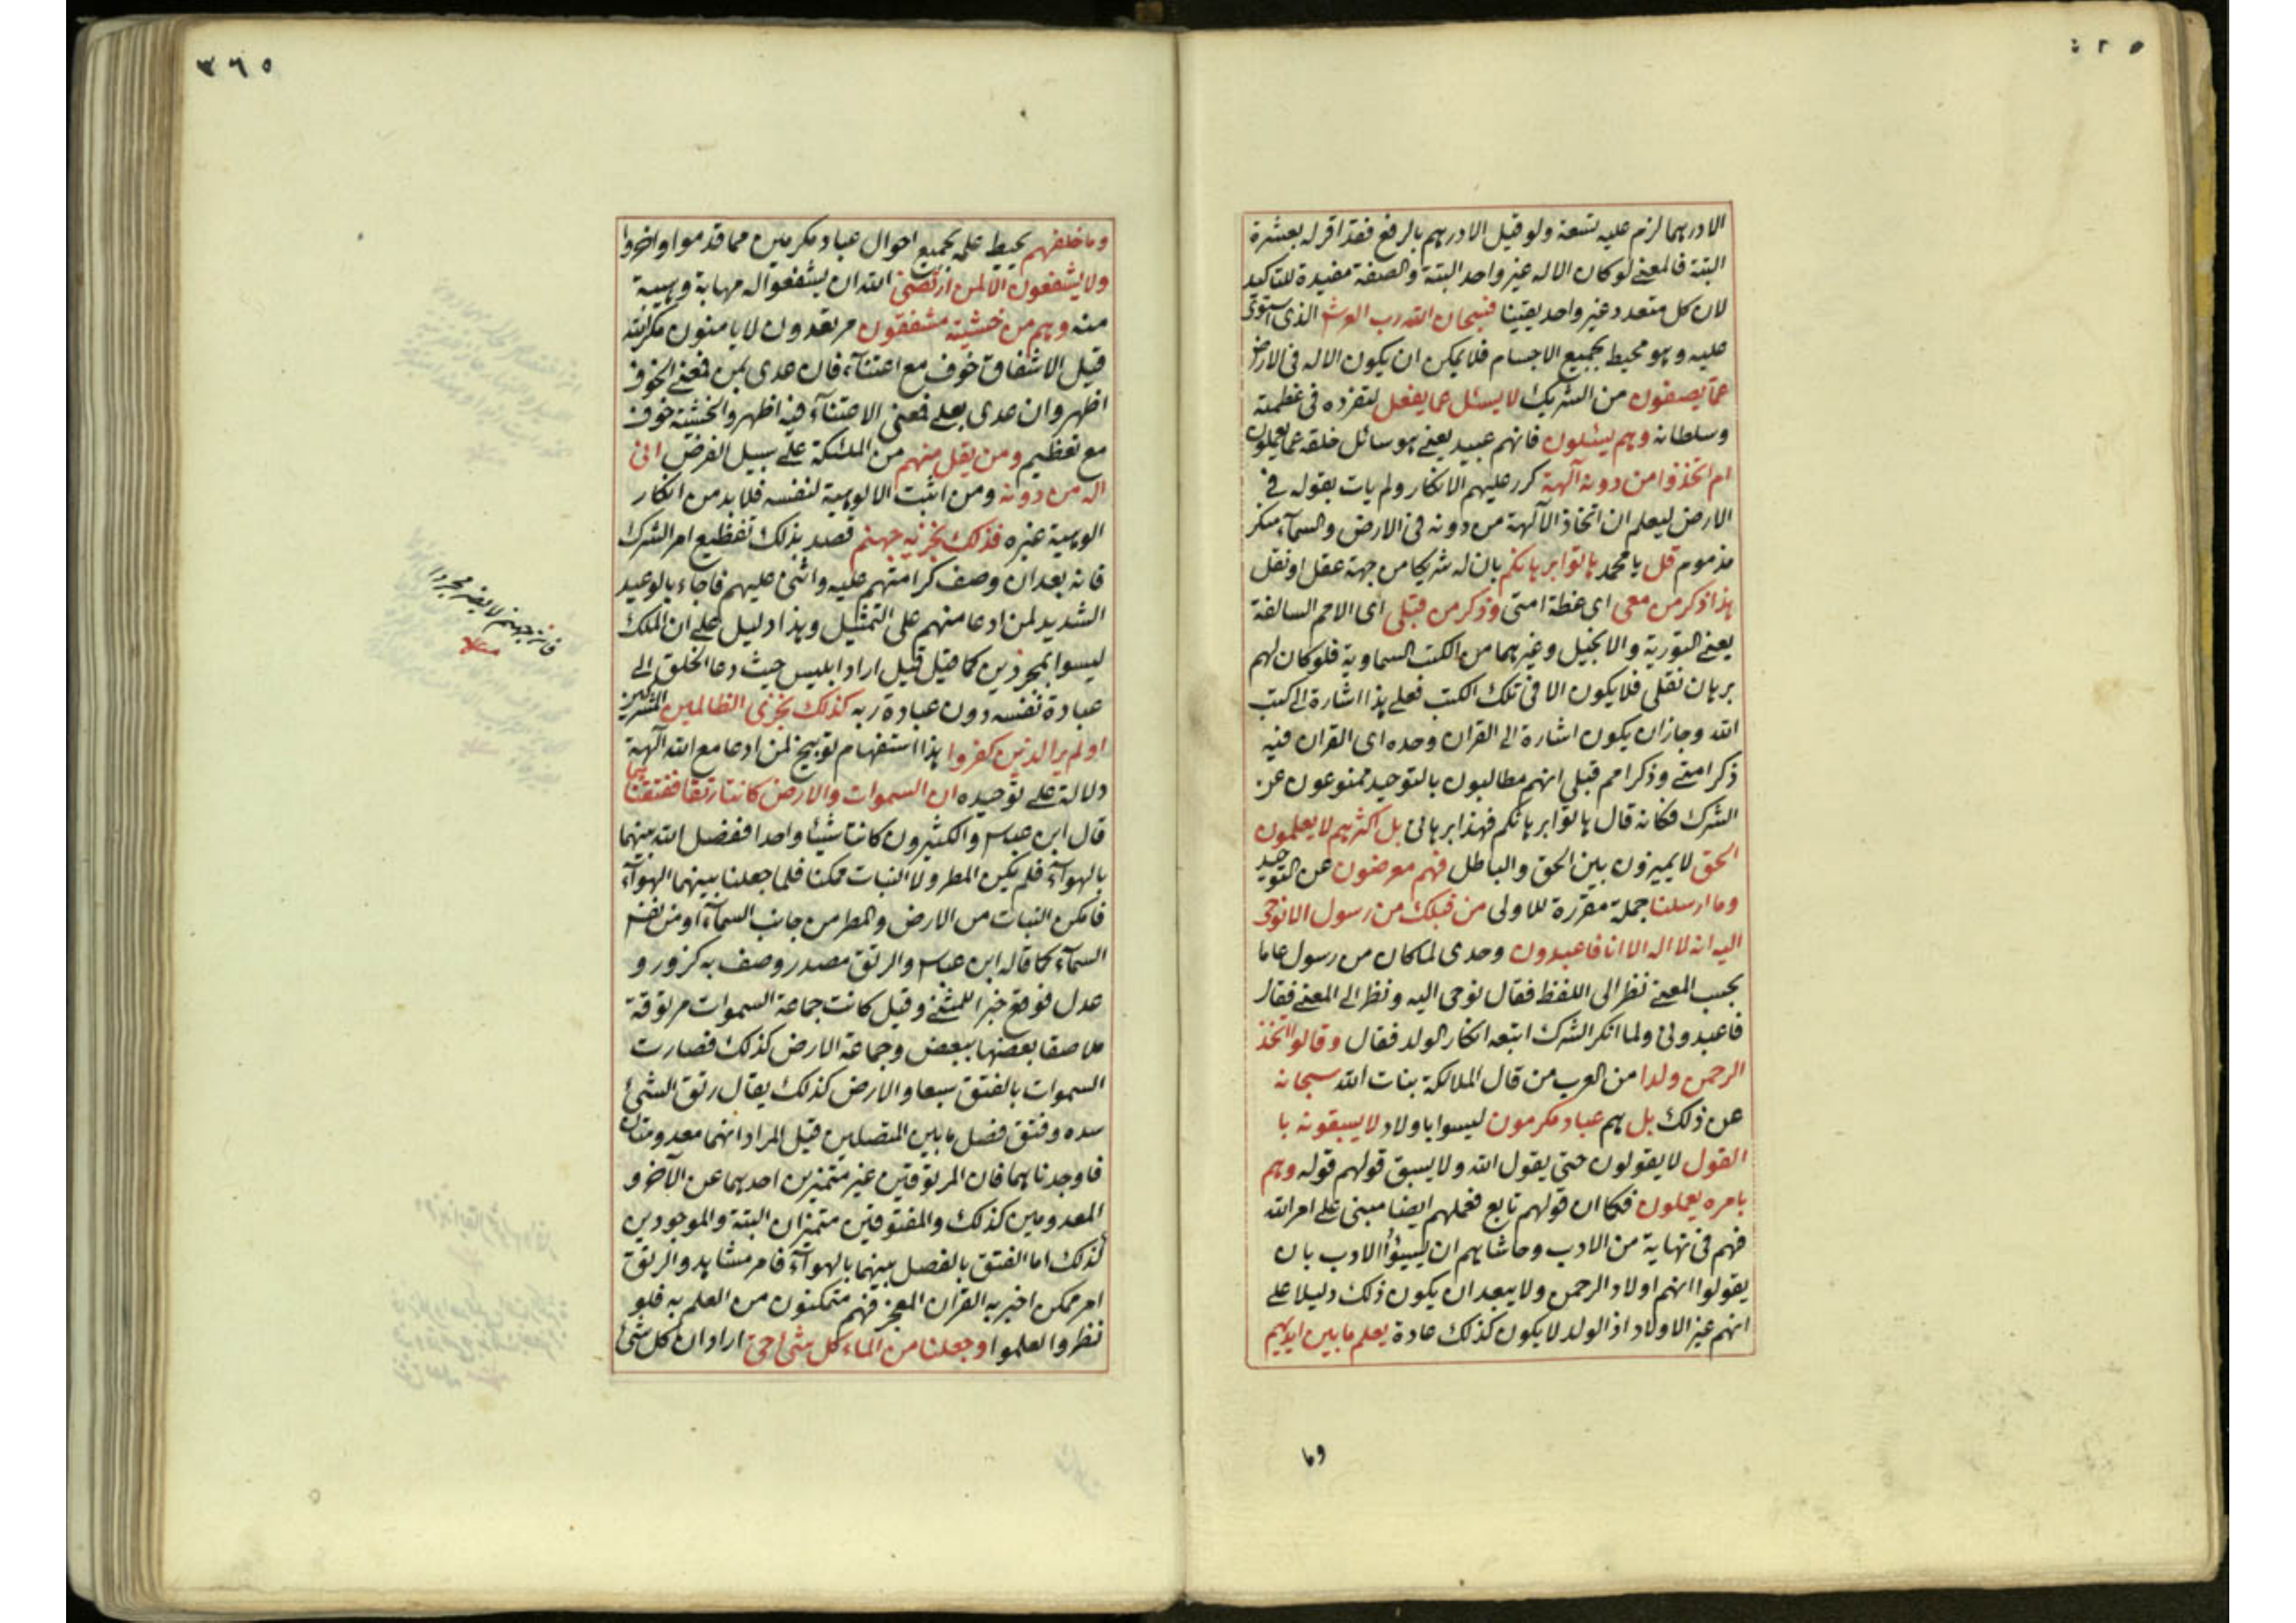 الا درهما لزم عليه تسعة ولو قيل الا درهم بالرفع فقد اقر له بعشرة
البتة فالمعنى لو كان الاله غير واحد البتة والصفة مفيدة للتاكيد
لان كل متعدد غير واحد يقينا فسبحان الله رب العرش الذى استوى
عليه وهو محيط بجميع الاجسام فلا يمكن ان يكون الاله فى الارض
عما يصفون من الشريك لا يسئل عما يفعل لتفرده فى عظمته
وسلطانه وهم يسئلون فانهم عبيد يعنى هو سائل خلقه عما يعملون
ام اتخذوا من دونه آلهة كرر عليهم الانكار ولم يات بقوله فى
الارض ليعلم ان اتخاذ الآلهة من دونه فى الارض والسمآء منكر
مذموم قل يا محمد هاتوا برهانكم بان له شريكا من جهة عقل او نقل
هذا ذكر من معى اى عظة امتى وذكر من قبلى اى الامم السالفة
يعنى التورية والانجيل وغيرهما من الكتب السماوية فلو كان لهم
برهان نقلى فلا يكون الا فى تلك الكتب فعلى هذا اشارة الى كتب
الله وجاز ان يكون اشارة الى القران وحده اى القران فيه
ذكر امتى وذكر امم قبلى انهم مطالبون بالتوحيد ممنوعون عن
الشرك فكانه قال هاتوا برهانكم فهذا برهانى بل اكثرهم لا يعلمون
الحق لا يميزون بين الحق والباطل فهم معرضون عن التوحيد
وما ارسلنا جملة مقررة للاولى من قبلك من رسول الا نوحى
اليه انه لا اله الا انا فاعبدون وحدى لما كان من رسول عاما
بحسب المعنى نظر الى اللفظ فقال نوحى اليه ونظر الى المعنى فقال
فاعبدونى ولما انكر الشرك اتبعه انكار الولد فقال وقالوا اتخذ
الرحمن ولدا من العرب من قال الملائكة بنات الله سبحانه
عن ذلك بل هم عباد مكرمون ليسوا باولاد لا يسبقونه با
القول لا يقولون حتى يقول الله ولا يسبق قولهم قوله وهم
بامره يعملون فكما ان قولهم تابع فعملهم ايضا مبنى على امر الله
فهم فى نهاية من الادب وحاشاهم ان يسيئوا الادب بان
يقولوا انهم اولاد الرحمن ولا يبعد ان يكون ذلك دليلا على
انهم غير الاولاد اذ الولد لا يكون كذلك عادة يعلم ما بين ايديهم
وما
٣٦٥
وما خلفهم يحيط علمه بجميع احوال عباد مكرمين مما قدموا واخروا
ولا يشفعون الا لمن ارتضى الله ان يشفعوا له مهابة وهيبة
منه وهم من خشيته مشفقون مرتعدون لا يامنون مكر الله
قيل الاشفاق خوف مع اعتنآء فان عدى بمن فمعنى الخوف
اظهر وان عدى بعلى فمعنى الاعتنآء فيه اظهر والخشية خوف
مع تعظيم ومن يقل منهم من الملئكة على سبيل الفرض انى
اله من دونه ومن اثبت الالوهية لنفسه فلا بد من انكار
الوهية غيره فذلك نجزيه جهنم قصد بذلك تفظيع امر الشرك
فانه بعد ان وصف كرامتهم عليه واثنى عليهم فاجاء بالوعيد
الشديد لمن ادعا منهم على التمثيل وهذا دليل على ان الملك
ليسوا بمجردين كما قيل قيل اراد ابليس حيث دعا الخلق الى
عبادة نفسه دون عبادة ربه كذلك نجزى الظالمين المشركين
اولم ير الذين كفروا هذا استفهام توبيخ لمن ادعا مع الله آلهة
دلالة على توحيده ان السموات والارض كانتا رتقا ففتقناهما
قال ابن عباس والكثيرون كانتا شيئا واحدا ففصل الله بينهما
بالهوآء فلم يكن المطر ولا النبات ممكنا فلما جعلنا بينهما الهوآء
فامكن النبات من الارض والمطر من جانب السمآء او من نفس
السمآء كما قاله ابن عباس والرتق مصدر وصف به كزور و
عدل فوقع خبرا للمثنى وقيل كانت جماعة السموات مرتوقة
ملاصقا بعضها ببعض وجماعة الارض كذلك فصارت
السموات بالفتق سبعا والارض كذلك يقال رتق الشئ
سده وفتق فصل ما بين المتصلين قيل المراد انهما معدومتان
فاوجدناهما فان المرتوقين غير متميزين احدهما عن الآخر و
المعدومين كذلك والمفتوقين متميزان البتة والموجودين
كذلك اما الفتق بالفصل بينهما بالهوآء فامر مشاهد والرتق
امر ممكن اخبر به القران المعجز فهم متمكنون من العلم به فلو
نظروا لعلموا وجعلنا من الماء كل شئ حى اراد ان كل شئ
فانه جهنم لا يضر مجردا